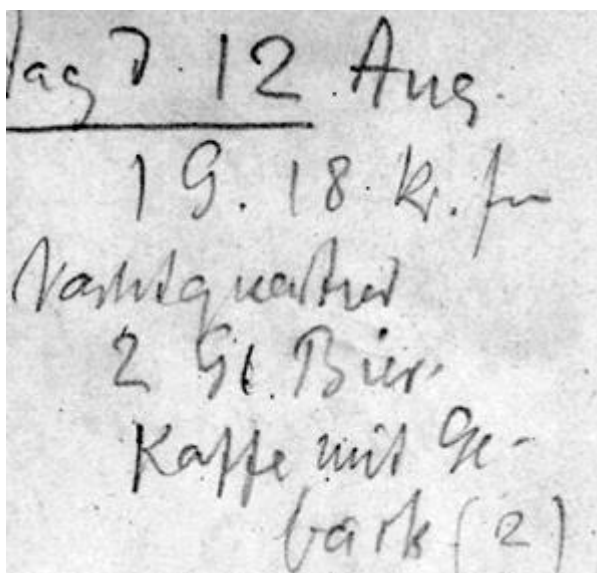 tag d. 12 Aug.
1 G. 18. kr. für
Nachtquartier
2 Gl. Bier.
Kaffe mit Ge-
bäck (2)